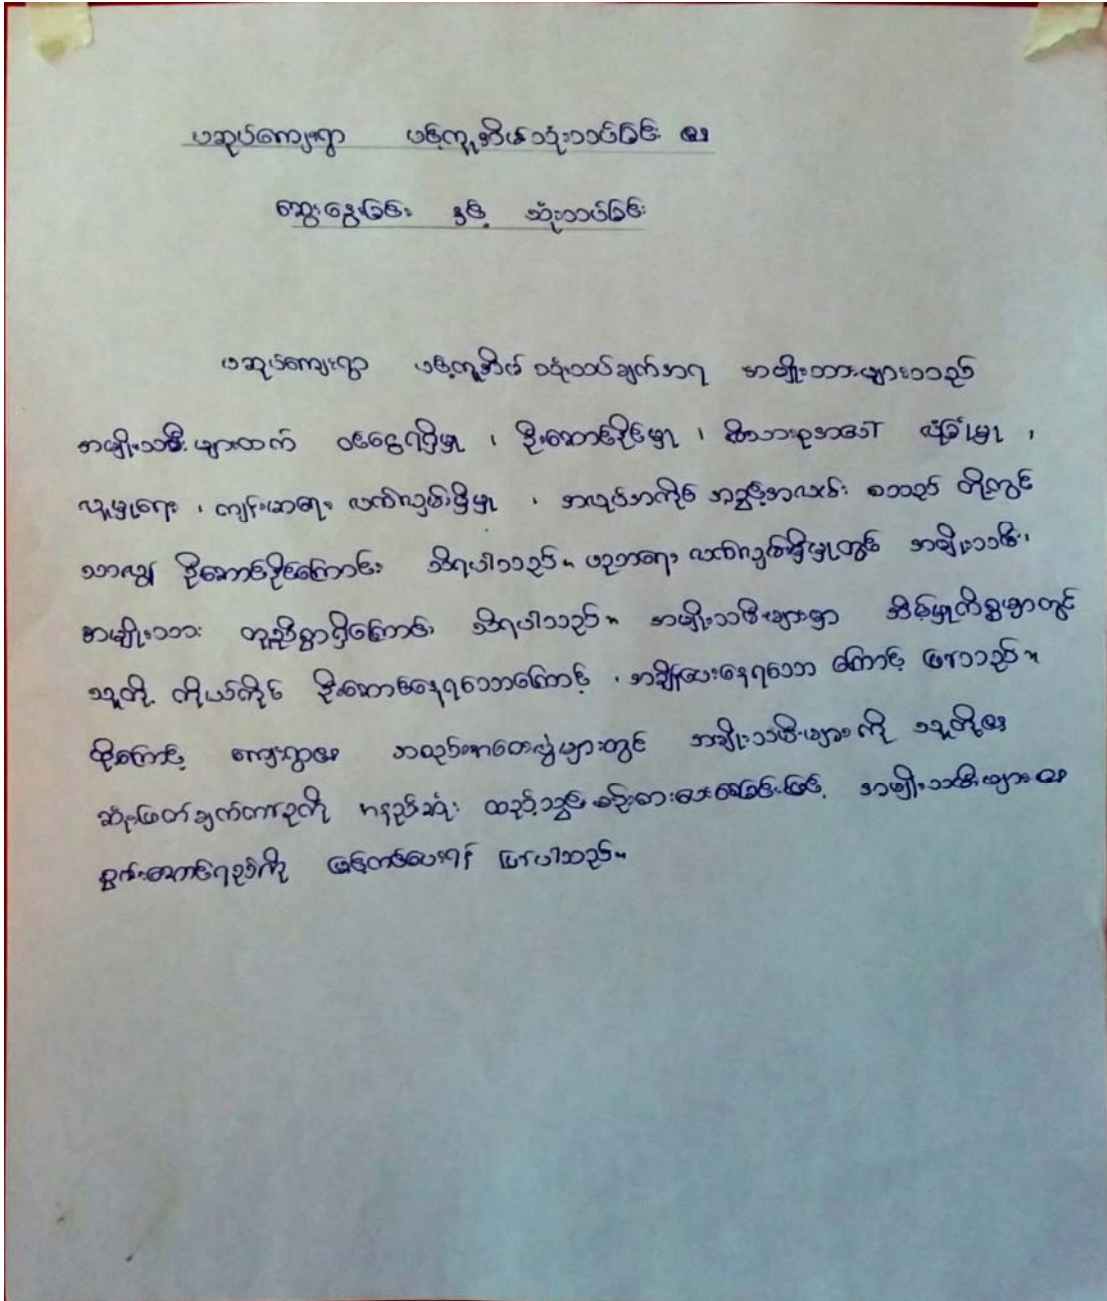 ဖဆုပ်ကျေးရွာ ပင့်ကူအိမ်သုံးသပ်ခြင်း ၏
ဆွေးနွေးခြင်း နှင့် သုံးသပ်ခြင်း
ဖဆုပ်ကျေးရွာ ပင့်ကူအိမ် သုံးသပ်ချက်အရ အမျိုးသားများသည်
အမျိုးသမီးများထက် ဝင်ငွေရရှိမှု ၊ ဦးဆောင်နိုင်မှု ၊ မိသားစုအပေါ် လုံခြုံမှု ၊
လူမှုရေး ၊ ကျန်းမာရေး လက်လှမ်းမှီမှု ၊ အလုပ်အကိုင် အခွင့်အလမ်း စသည် တို့တွင်
သာလျှံ ဦးဆောင်နိုင်ကြောင်း သိရပါသည်။ ပညာရေး လက်လှမ်းမှီမှုတွင် အမျိုးသမီး၊
အမျိုးသား တူညီစွာရှိကြောင်း သိရပါသည်။ အမျိုးသမီးများမှာ အိမ်မှုကိစ္စများတွင်
သူတို့ ကိုယ်တိုင် ဦးဆောင်နေရသောကြောင့် ၊ အချိန်ပေးနေရသော ကြောင့် ဖြစ်သည်။
ထို့ကြောင့် ကျေးရွာ၏ အစည်းအဝေးပွဲများတွင် အမျိုးသမီးများ ကို သူတို့၏
ဆုံးဖြတ်ချက်တစ်ခုကို အနည်းဆုံး ထည့်သွင်း စဉ်းစားပေးစေခြင်းဖြင့် အမျိုးသမီးများ ၏
စွမ်းဆောင်ရည်ကို မြှင့်တင်ပေးရန် ဖြစ်ပါသည်။